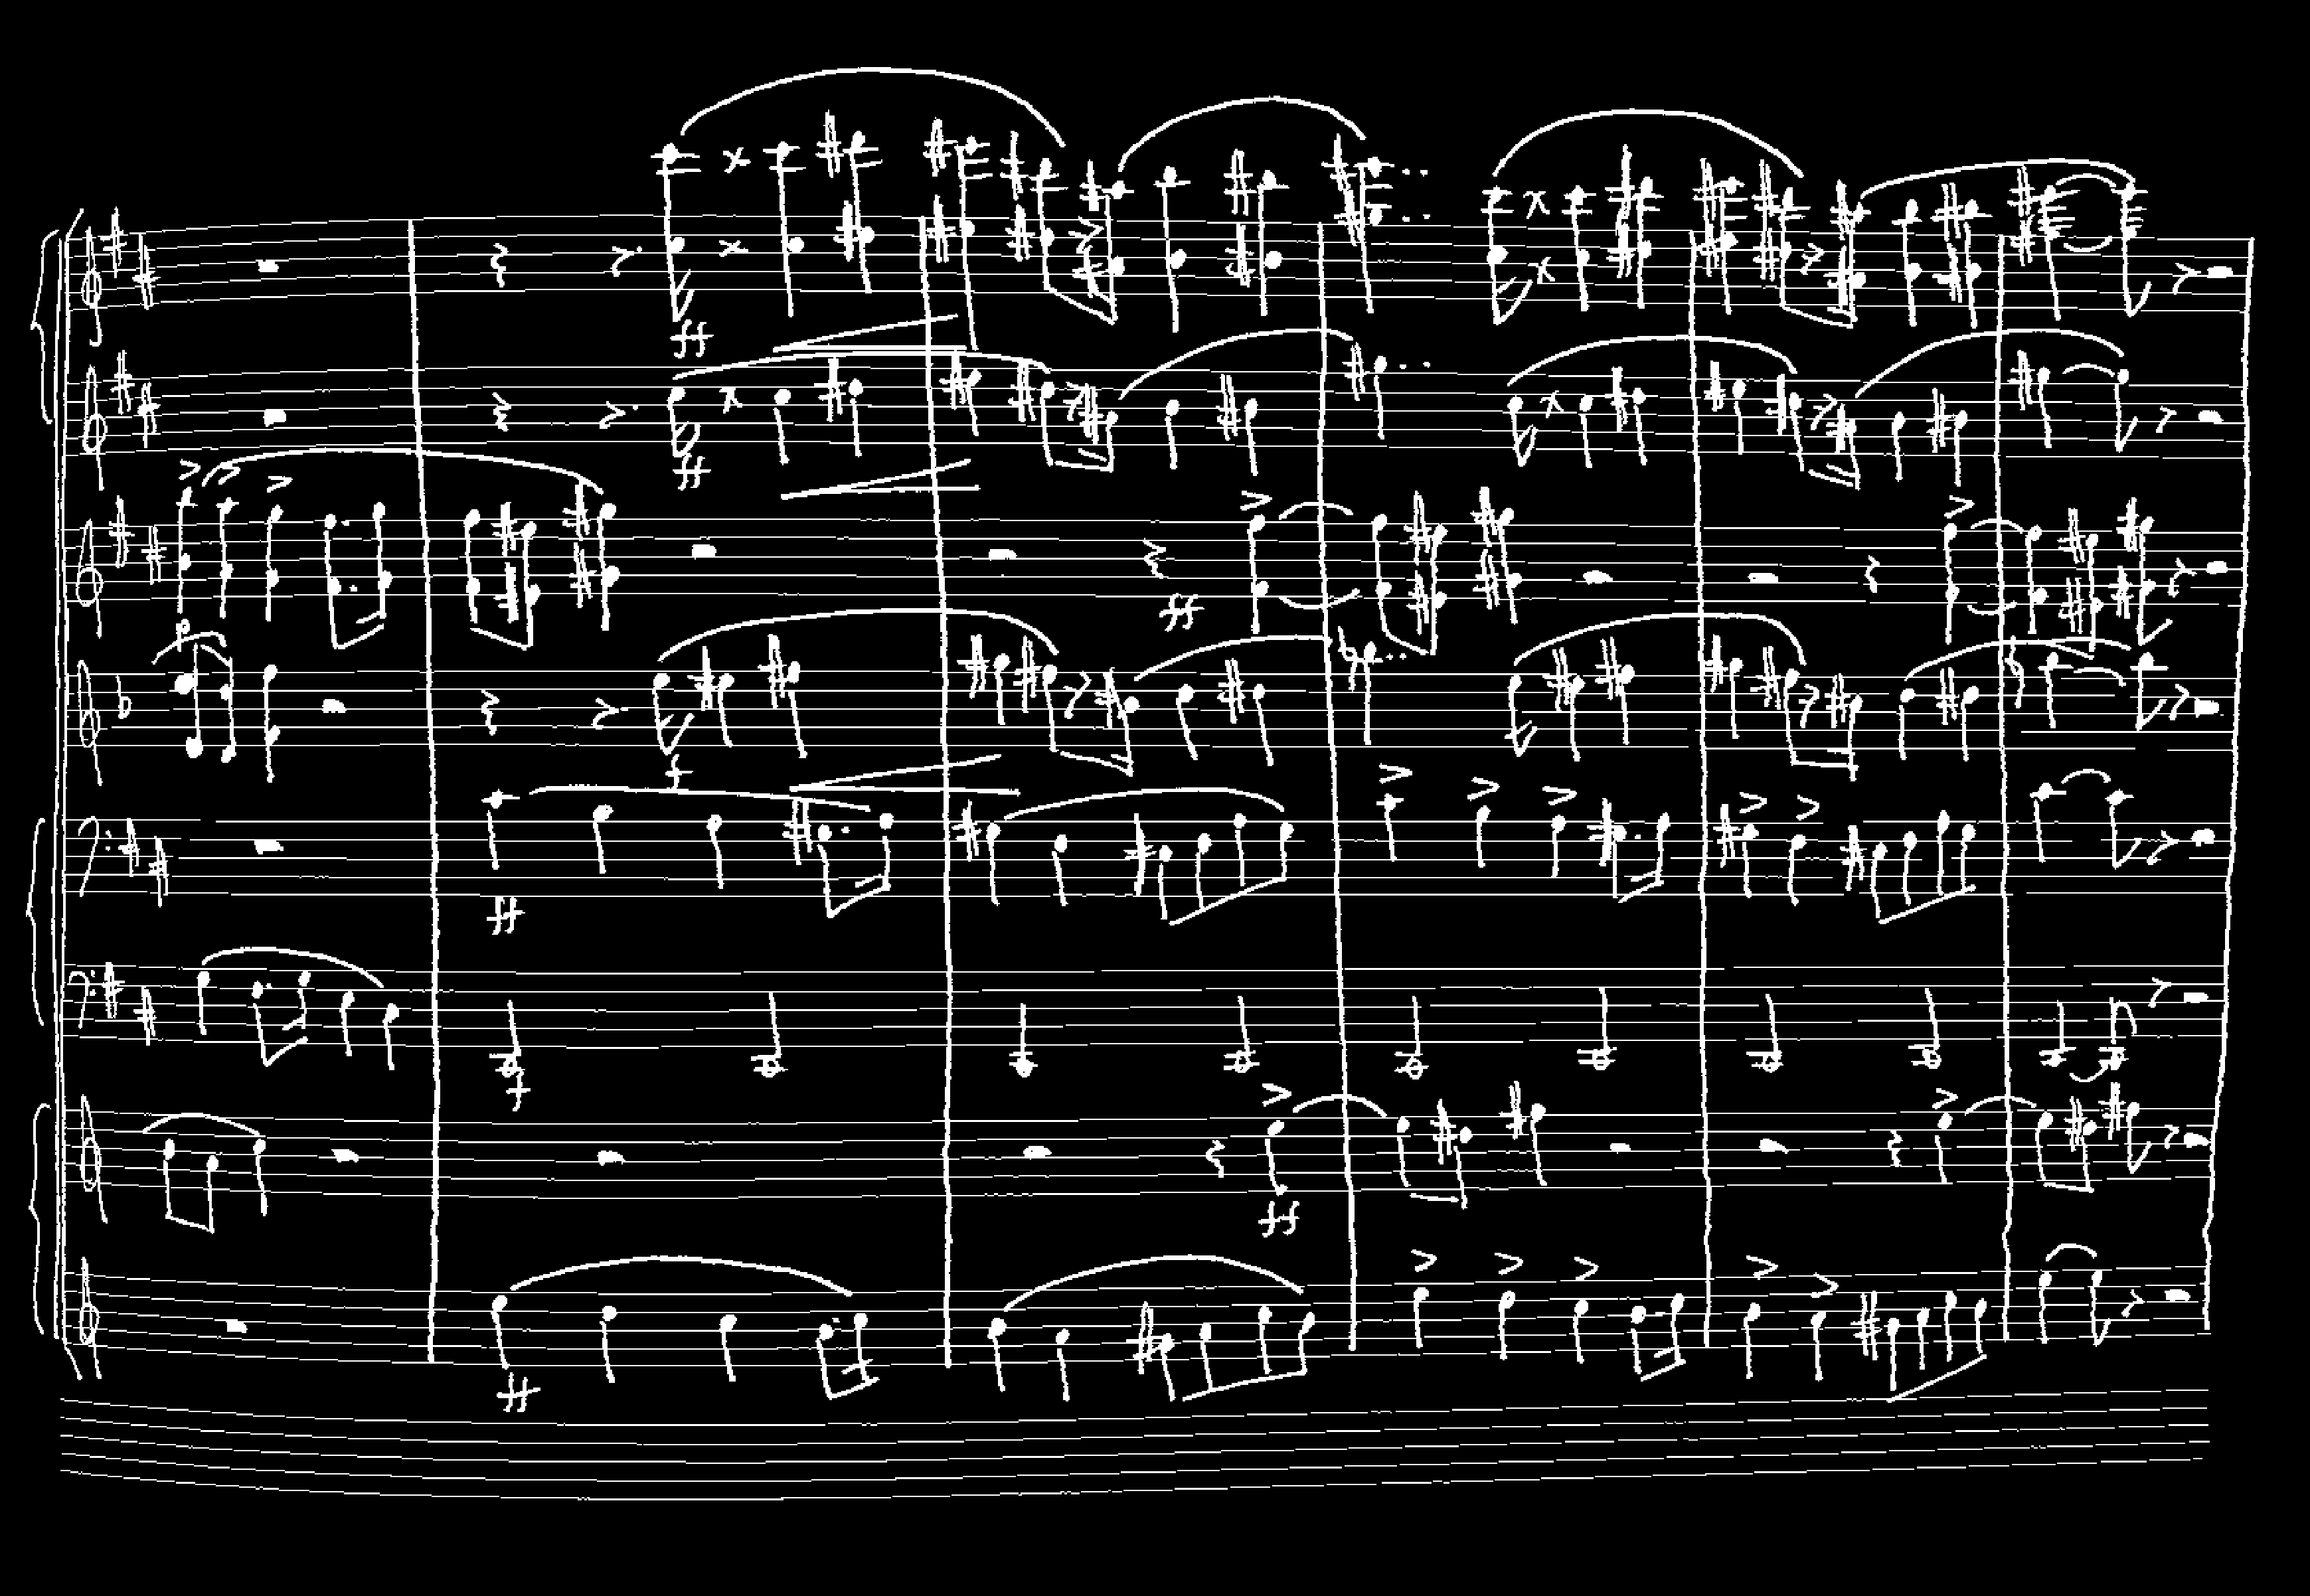 ff
ff
ff
p
f
ff
f
ff
ff